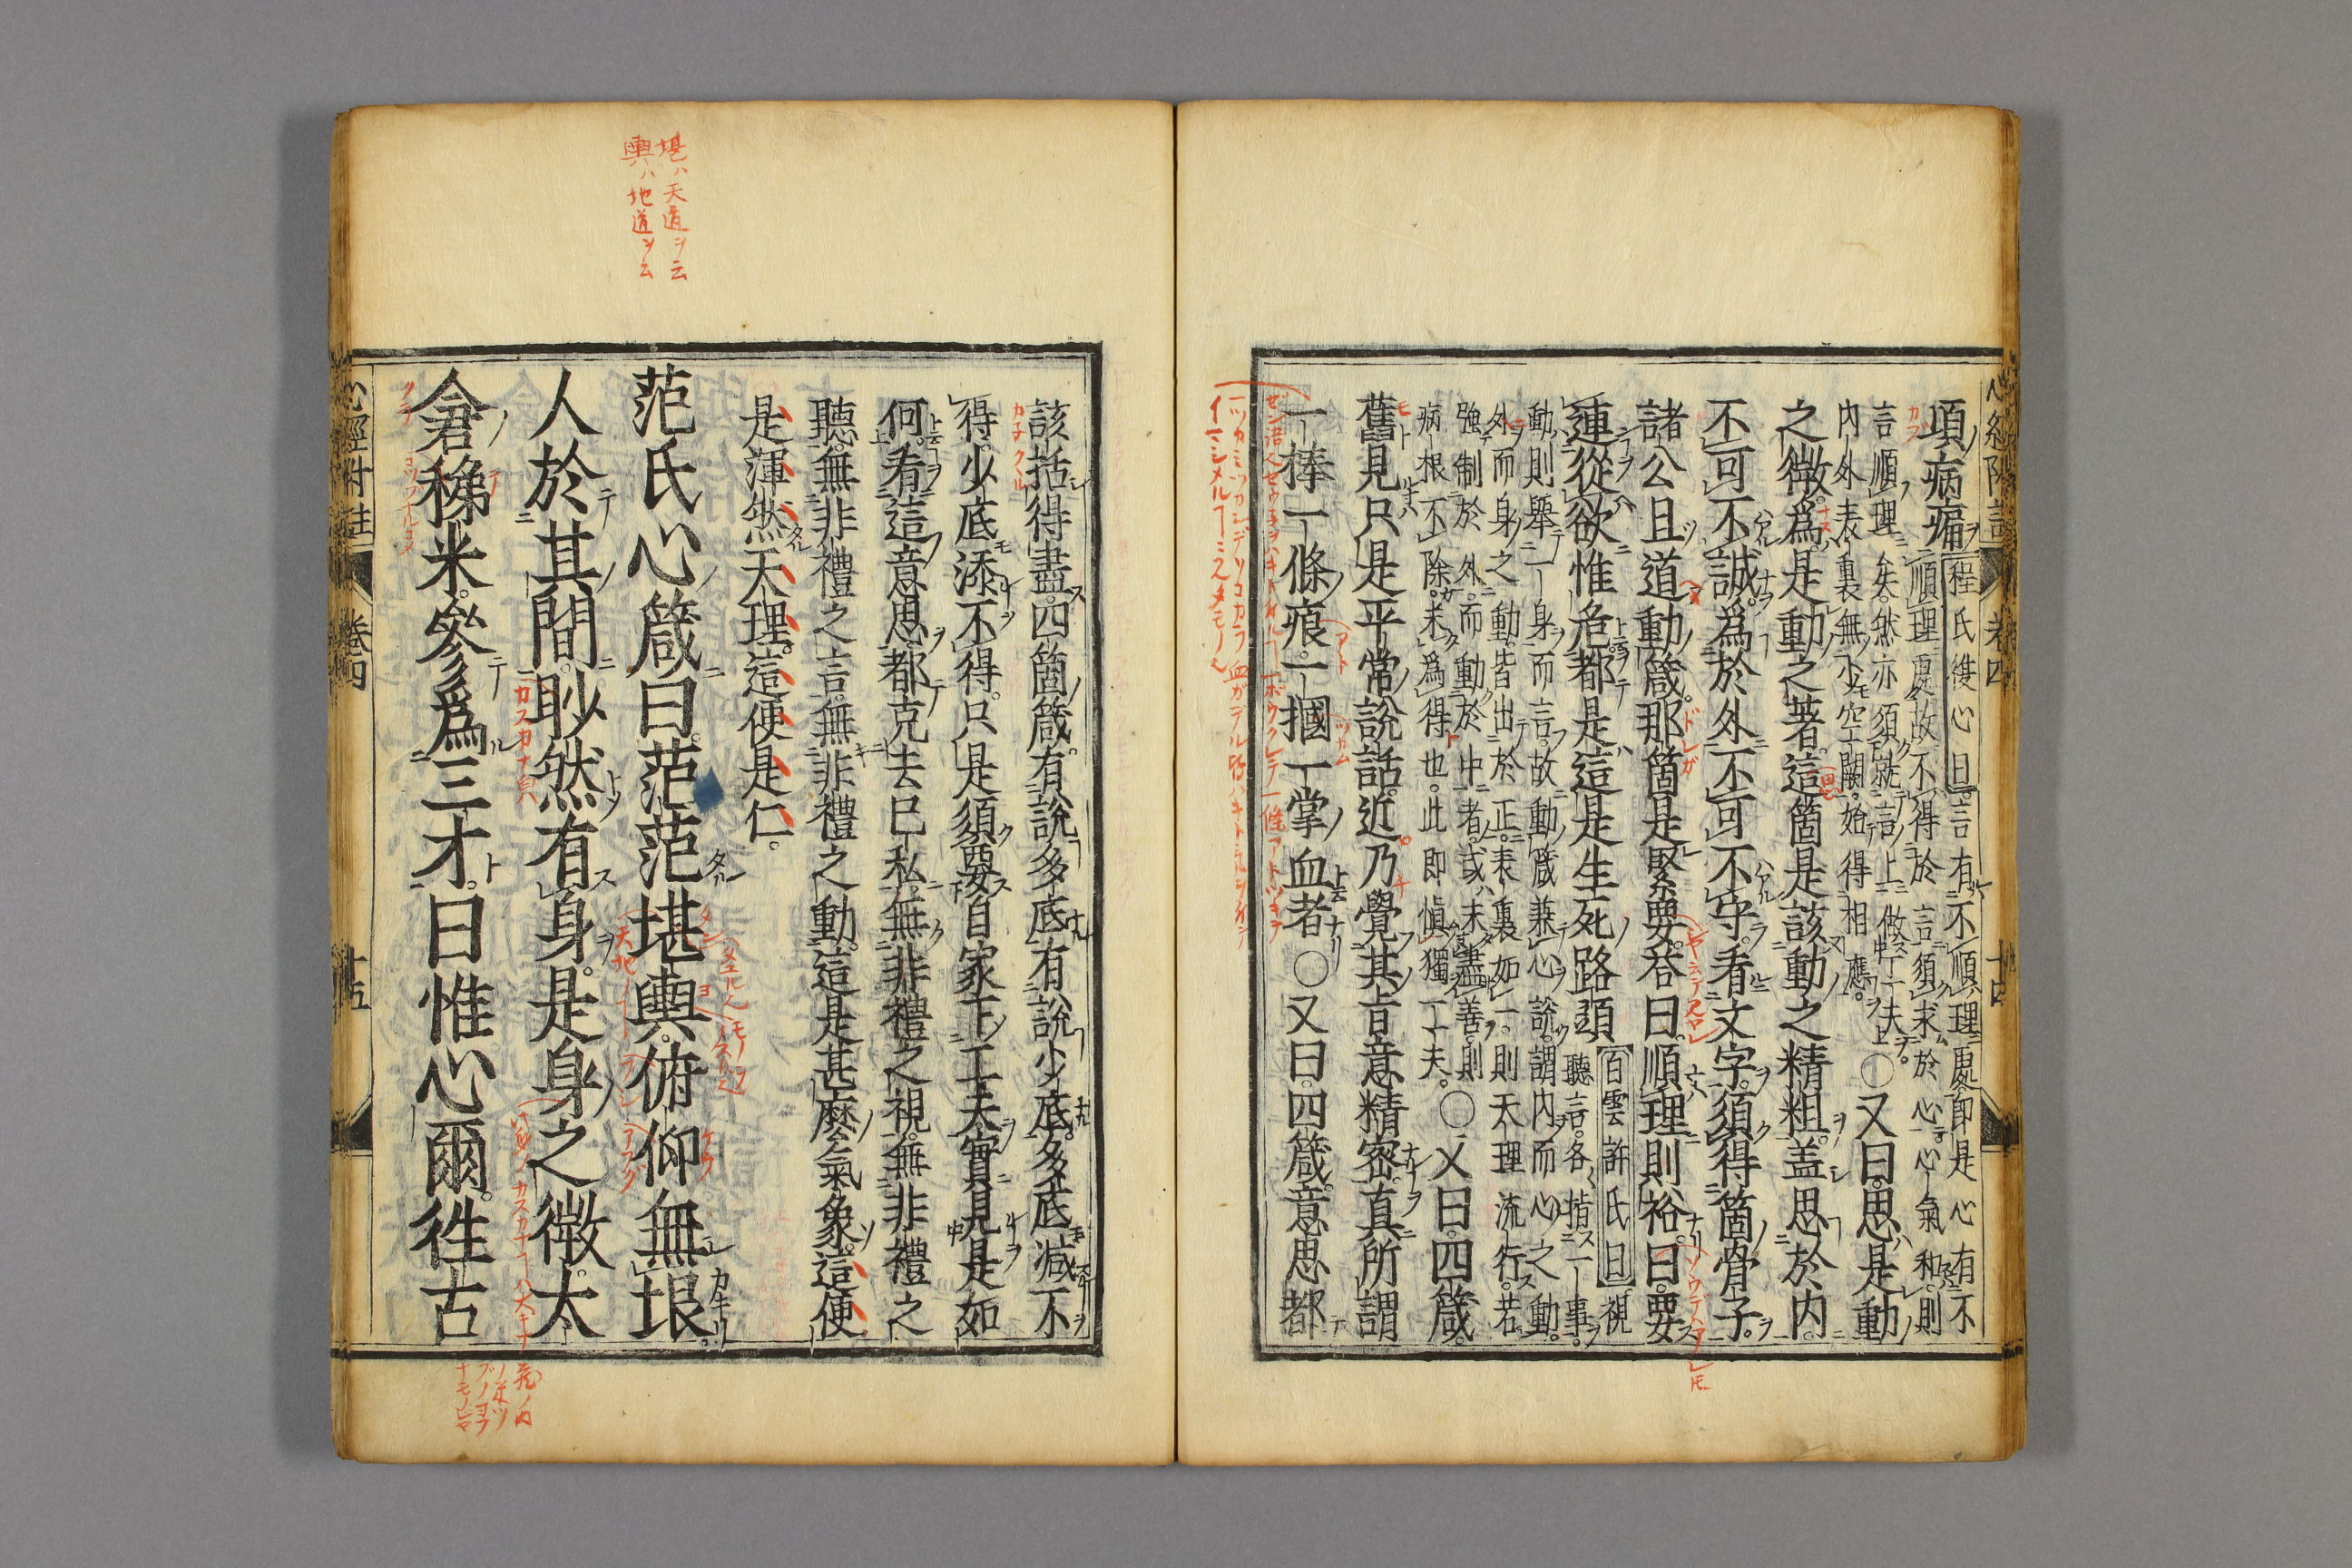 心經附註 卷四 十四
項病痛
程氏復心曰言有不順理處即是心有不
順理處故不得於言須求於心心氣和則
言順理矣然亦須就言上做工夫
內外表裏無少空闕始得相應
〇又曰思是動
之微爲是動之著這箇是該動之精粗盖思於內
不可不誠爲於外不可不守看文字須得箇骨子
諸公且道動箴那箇是緊要荅曰順理則裕曰要
連從欲惟危都是這是生死路頭
百雲許氏曰視
聽言各指一事
動則舉一身而言故動箴兼心說謂內而心之動
外而身之動皆出於正表裏如一則天理流行若
強制於外而動於中者或未盡善則
病根不除未爲得也此即愼獨工夫
〇又曰四箴
舊見只是平常說話近乃覺其旨意精密真所謂
一棒一條痕一摑一掌血者〇又曰四箴意思都
該括得盡四箇箴有說多底有說少底多底減不
得少底添不得只是須要自家下工夫實見是如
何看這意思都克去已私無非禮之視無非禮之
聽無非禮之言無非禮之動這是甚麽氣象這便
是渾然天理這便是仁
堪ハ天道ヲ云
輿ハ地道ヲ云
范氏心箴曰茫茫堪輿俯仰無垠
人於其間眇然有身是身之微太
倉稊米參爲三才曰惟心爾徃古
心經附註 卷四 十五